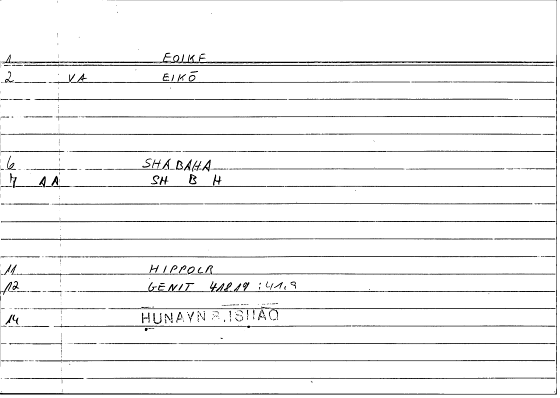 1 EOIKE
2 VA EIKŌ
6 SHABAHA
7 AA SH B H
11 HIPPOCR
12 GENIT 41819 : 41,9
14 HUNAYN B. ISHAQ